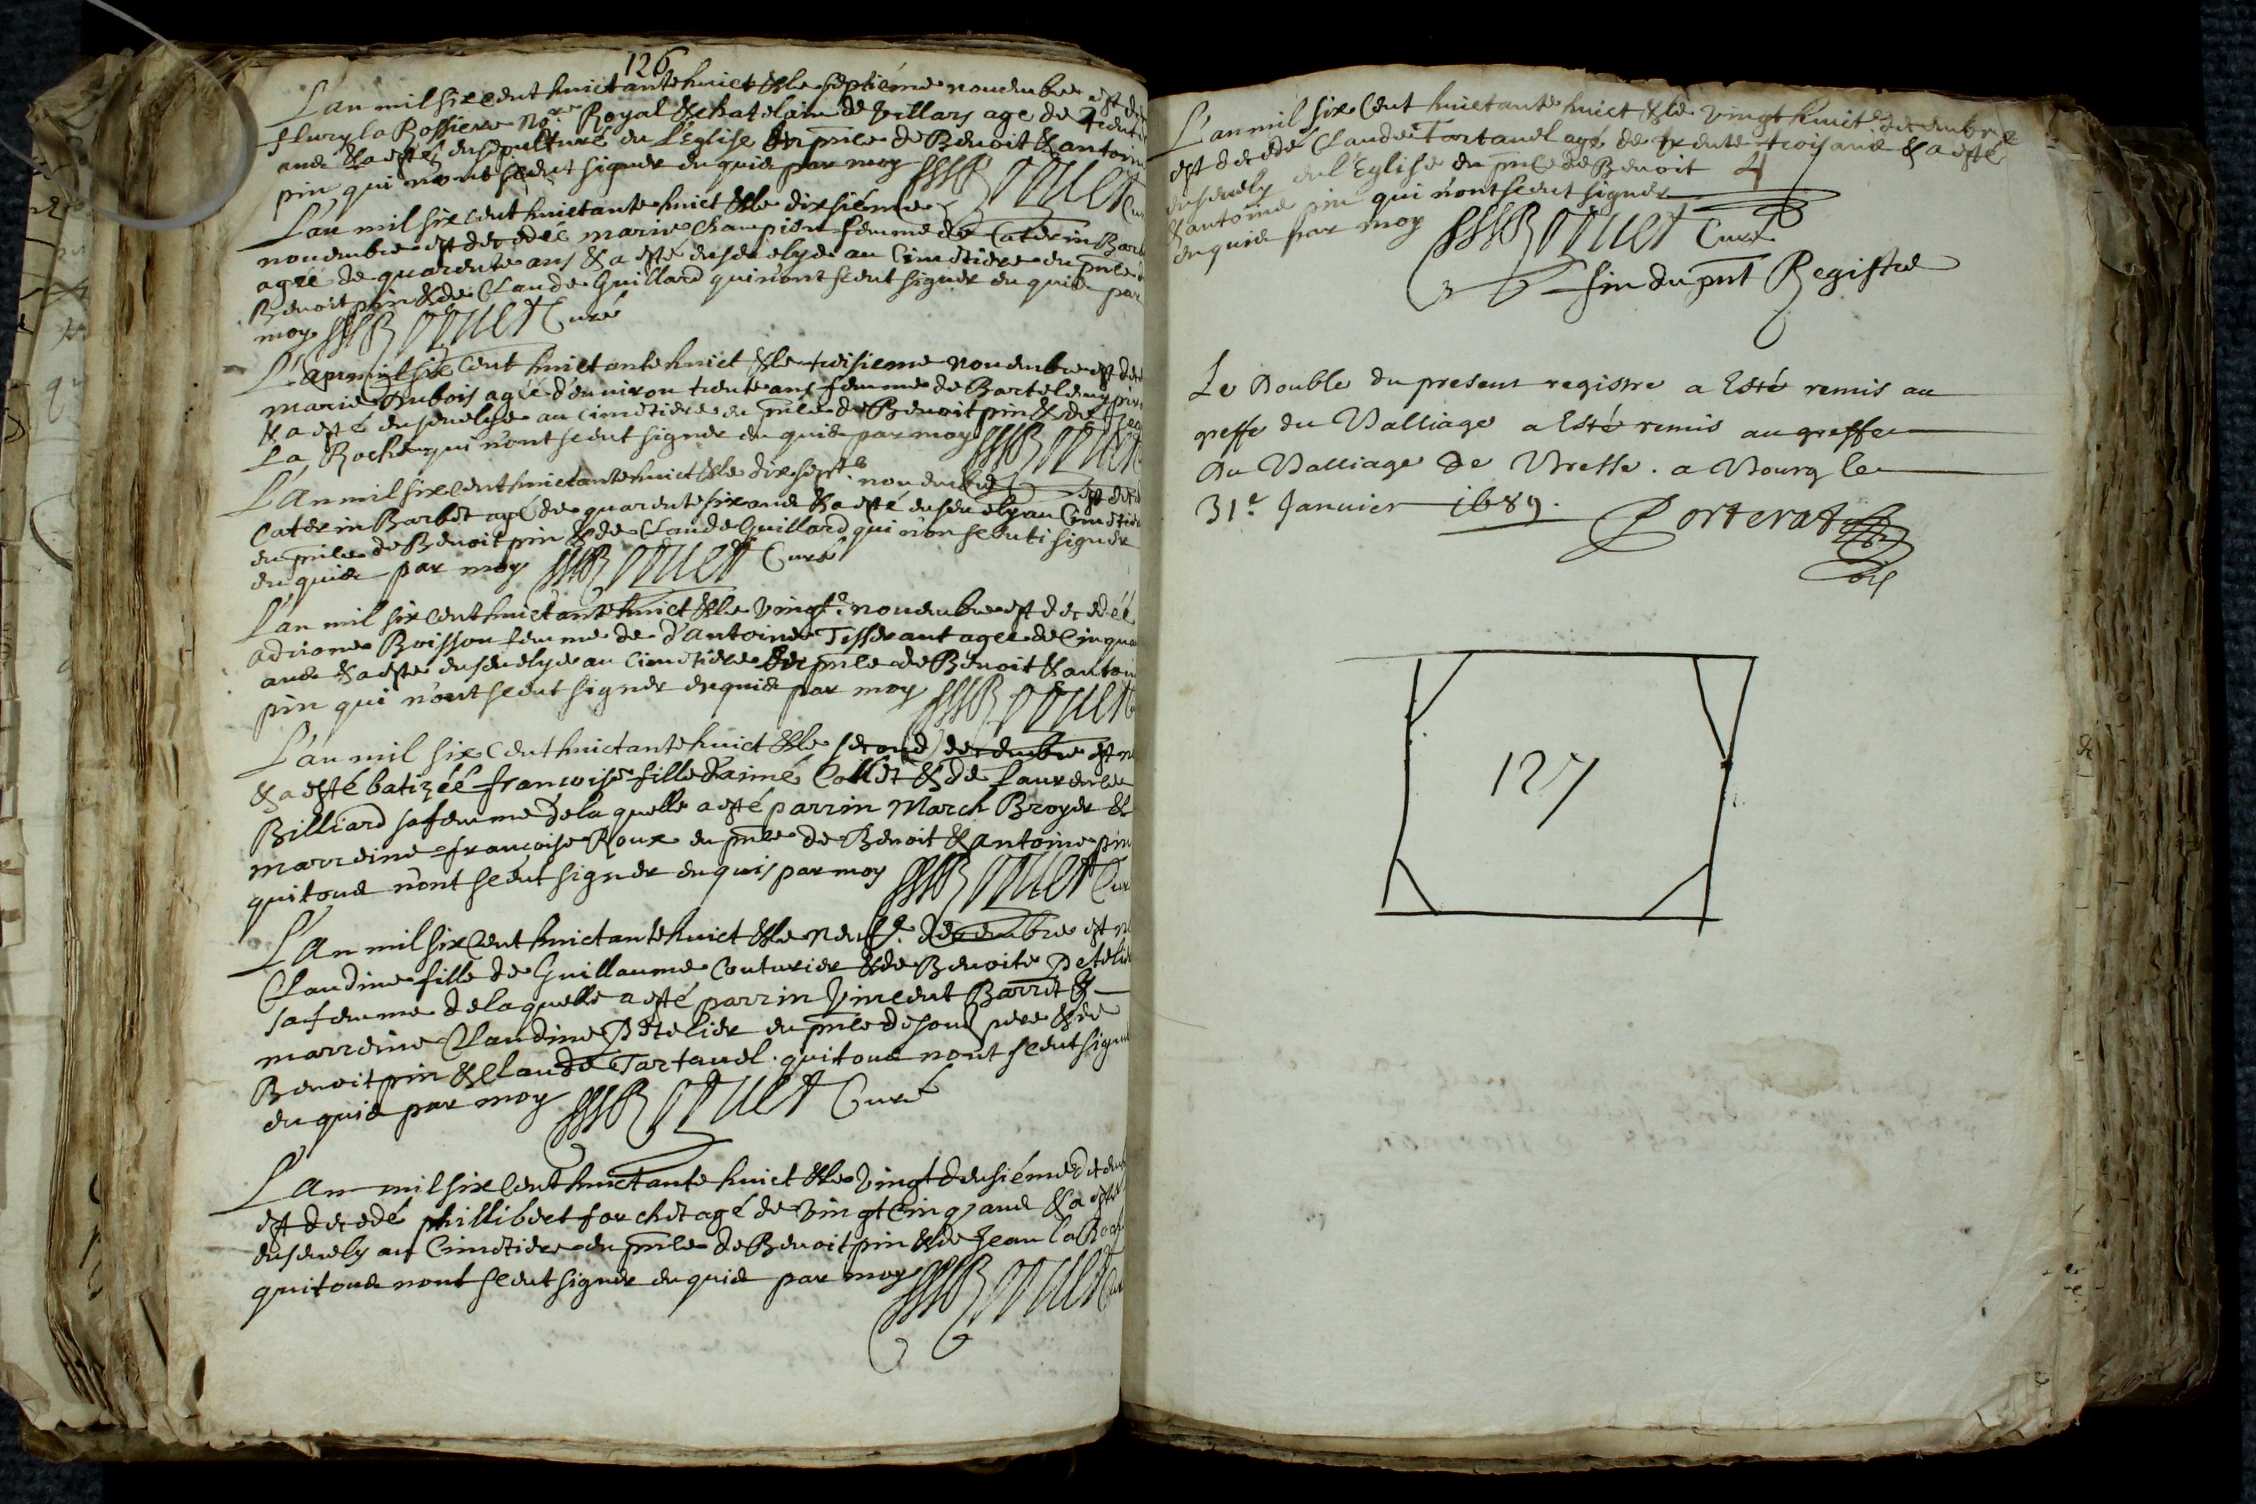 126
L'an mil six cent huictante huict & le septieme nouembre est
fleury la Rossiere No.re Royal & chatelain de villars age de trent
ans & a esté ensepulturé en l'Eglise en p̄nce de Benoit & antoin
pin qui n'ont sceut signer enquis par moy Bozuet Cur
L'an mil six cent huictante huict & le dixsieme
nouembre est decedée marie Champion femme de Caterin Barb
agée de quarente ans & a esté enseuelye au Cimetiere en p̄nce d
Benoit pin & de Claude Guillard qui n'ont sceut signer enquis par
moy Bozuet Curé
L'an mil six Cent huictante huict & le treisieme nouembre est dec
marie Dubois agée d'enuiron trente ans femme de Bartelemy pin
& a esté enseuelye au cimetiere en p̄nce de Benoit pin & de Jean
La Roche qui n'ont sceut signer en quis par moy Bozuet
L'An mil six cent huictante huict & le dixsept.e nouembre est dece
Caterin Barbet agé de quarente six ans & a esté enseuely au Cimetier
en p̄nce de Benoit pin & de Claude Guillard qui n'on sceuti signer
enquis par moy Bozuet Curé
L'an mil six cent huictante huict & le vingt.e nouembre est decedéé
adriane Boisson femme de d'antoine Tisserant agee de Cinqua
ans & a esté enseuelye au cimetiere en p̄nce de Benoit & antoin
pin qui n'ont sceut signer enquis par moy Bozuet
L'an mil six Cent huictante huict & le second decembre est n
& a esté batizéé francoise fille d'aimé Collet & de Laurence
Billiard sa femme de la quelle a esté parrin March Broyer &
marreine francoise Roux en p̄nce de Benoit & antoine pin
qui tous n'ont sceut signer enquis par moy Bozuet Cur
L'An mil six Cent huictante huict & le neuf.e decembre est n
Claudine fille de Guillaume Couturier & de Benoite Petelie
sa femme de la quelle a esté parrin Vincent Barret &
marreine Claudine Petelier en p̄nce de son pere & de
Benoit pin & Claude Tartauel. qui tous n'ont sceut signe
enquis par moy Bozuet Curé
L'An mil six Cent huictante huict & le vingt deusiéme decem
est decedé phillibert forchet agé de vingt cinq ans & a esté
enseuely au Cimetiere en p̄nce de Benoit pin & de Jean la Roch
qui tous n'ont sceut signer enquis par moy Bozuet Cur
L'an mil six Cent huictante huict & le vingt huict.e decembre
est decedé Claude Tartauel agé de trente trois ans & a esté
enseuely en l'Eglise en p̄nce de Benoit
& antoine pin qui n'ont sceut signer
enquis par moy Bozuet Curé
fin du p̄nt Registre
Le Double du present registre a Esté remis au
greffe du Balliage a Esté remis au greffe
du Balliage de Bresse. a Bourg le
31.e Januier 1689.
Porterat
127